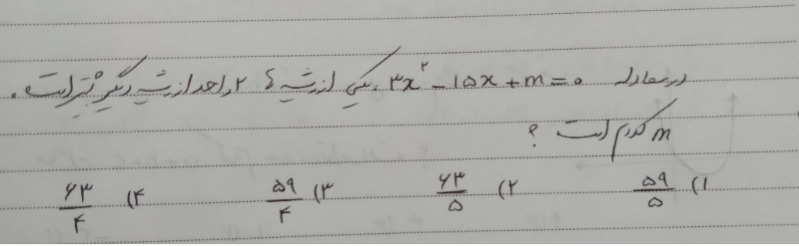 در معادله ۳x² - ۱۵x + m = ۰ ، یکی از ریشه ها ۲ واحد از ریشه دیگر بیشتر است.
m کدام است ؟
۱) ۵۹/۵ ۲) ۶۳/۵ ۳) ۵۹/۴ ۴) ۶۳/۴